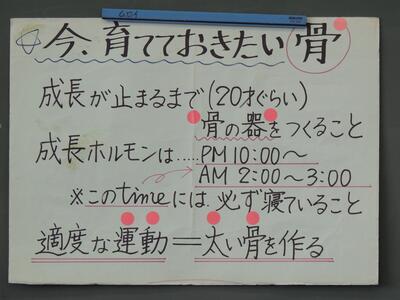 今、育てておきたい骨
成長が止まるまで(20才ぐらい)
骨の器をつくること
成長ホルモンは.....PM10:00〜
AM 2:00〜3:00
※このtimeには必ず寝ていること
適度な運動=太い骨を作る